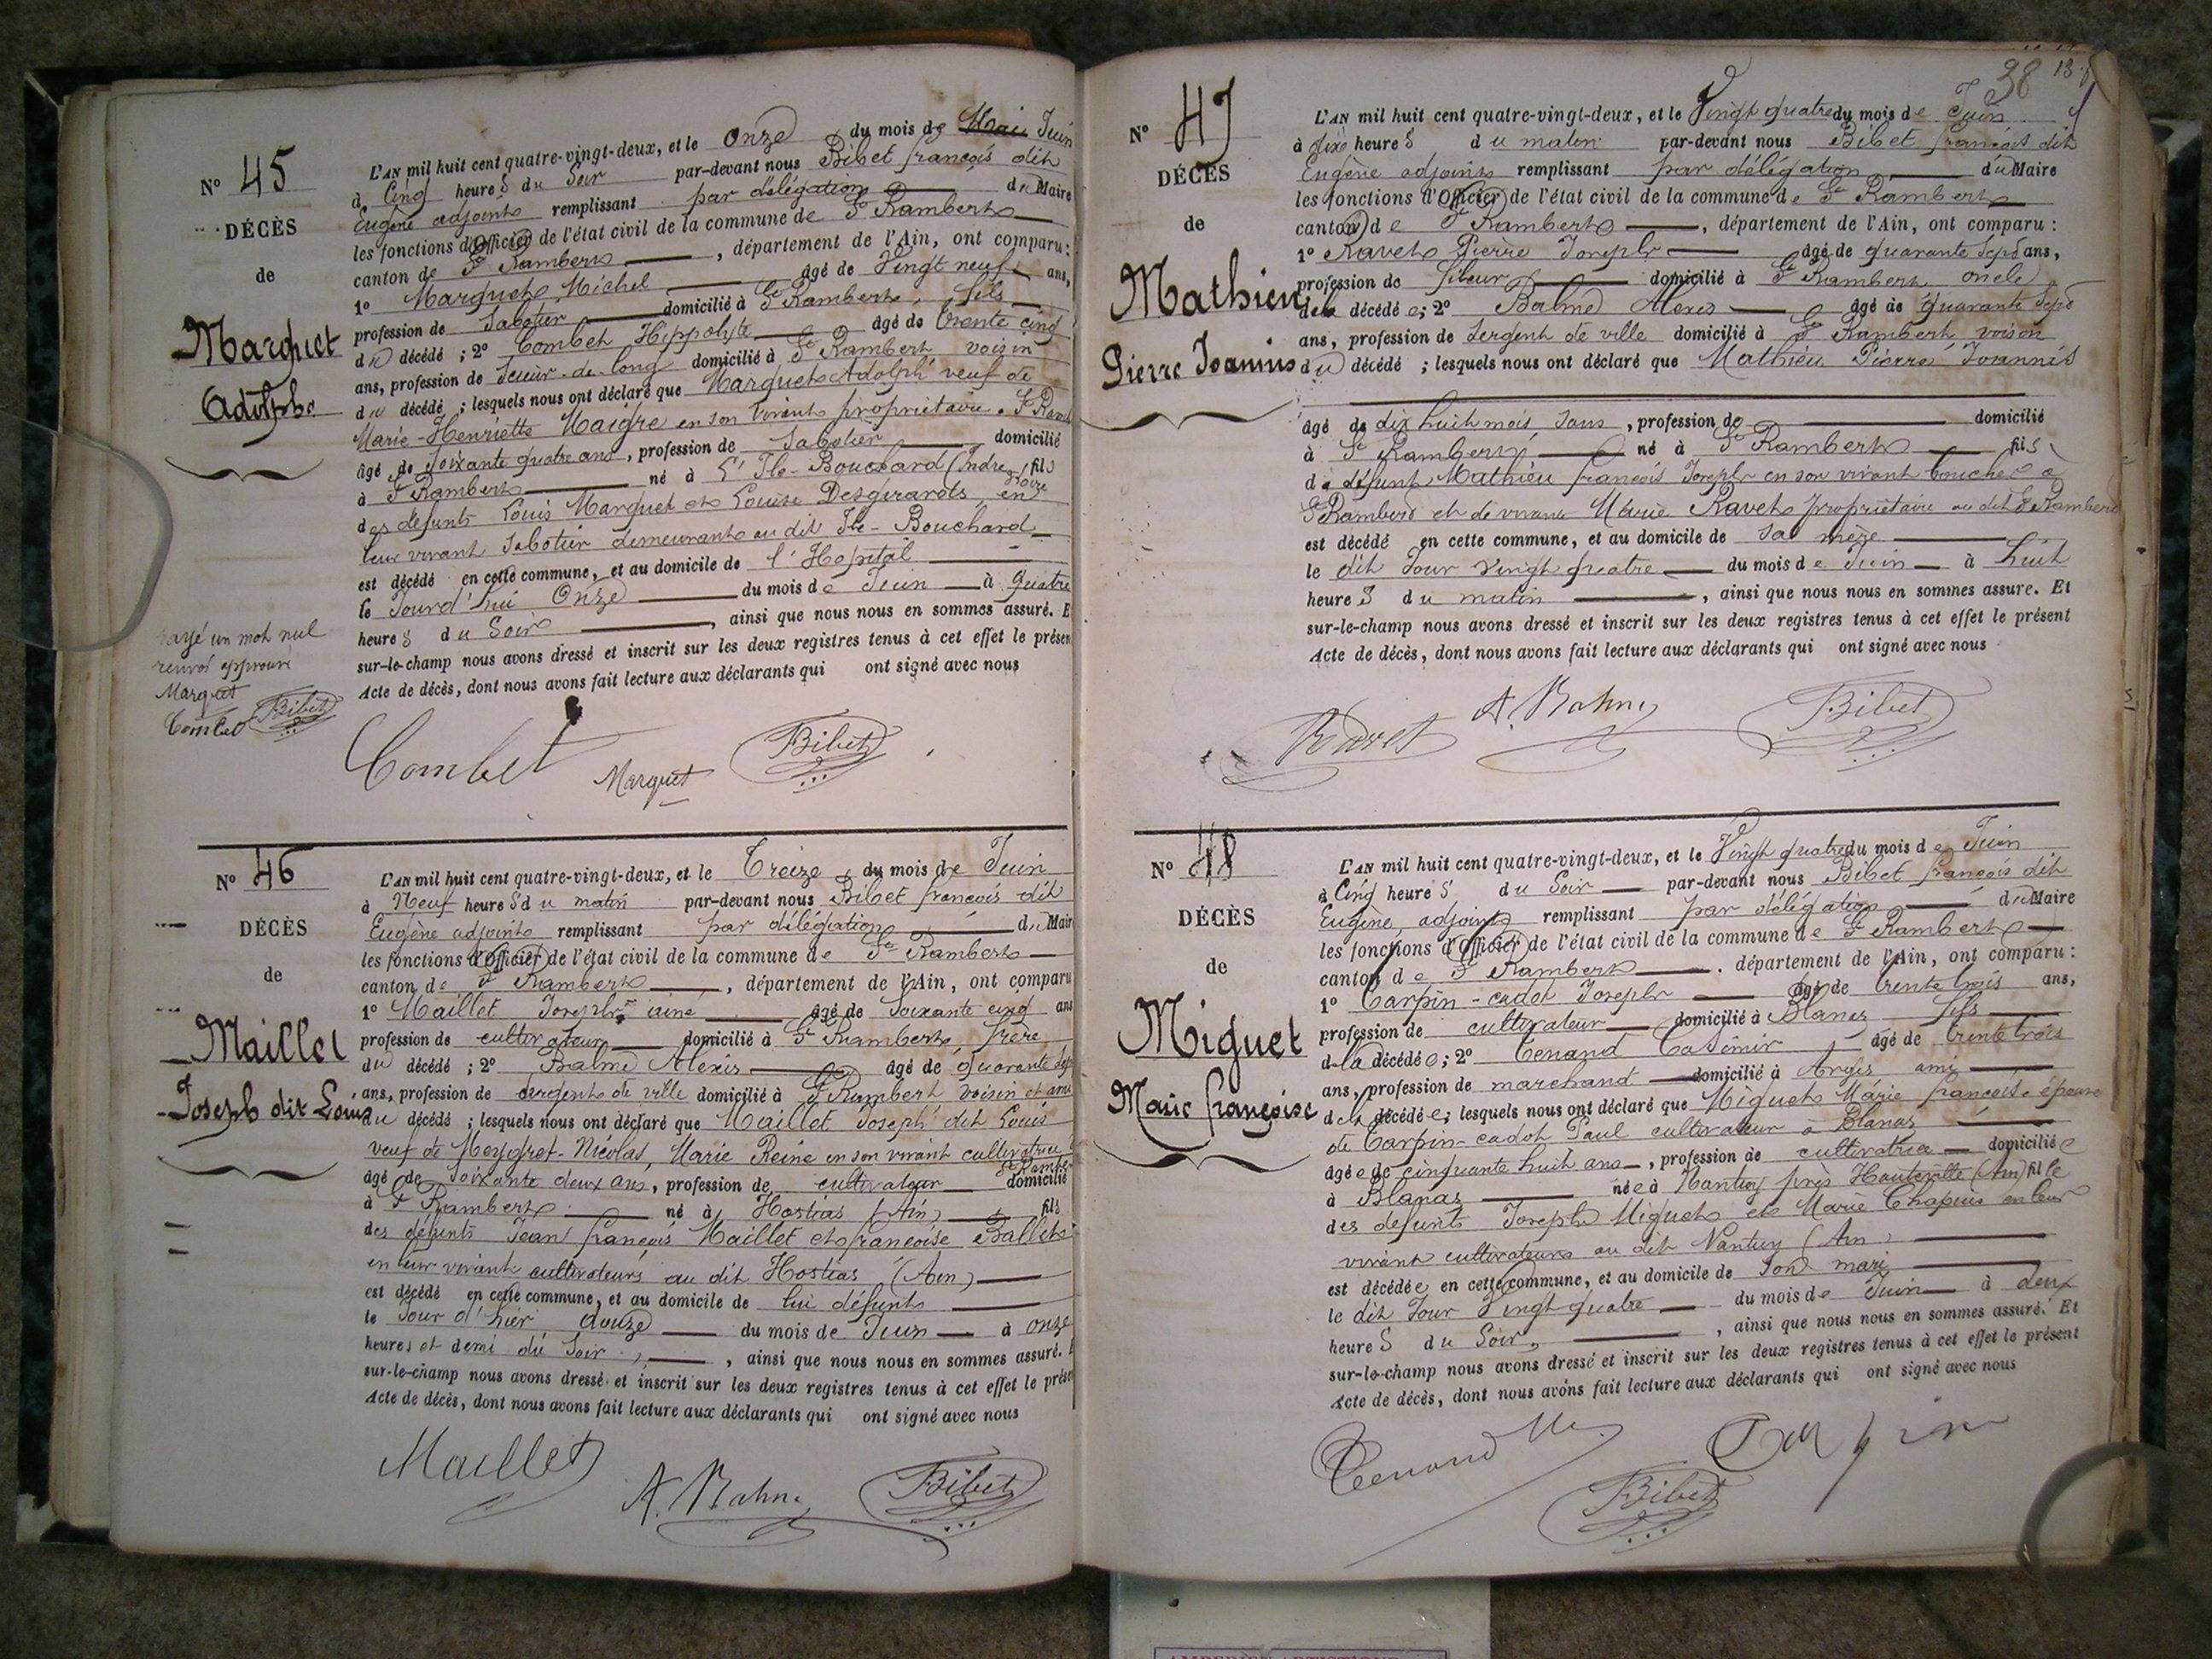 N° 45
DÉCÈS
de
Marquet
Adolphe
rayé un mot nul
renvoi approuvé
Marquet
Combet Bibet
L'AN mil huit cent quatre-vingt-deux, et le onze du mois de Mai Juin
à Cinq heures du Soir par-devant nous Bibet françois dit
Eugène adjoint remplissant par délégation du Maire
les fonctions d'Officier de l'état civil de la commune de St Rambert
canton de St Rambert, département de l'Ain, ont comparu:
1° Marquet Michel âgé de Vingt neuf ans,
profession de Sabotier domicilié à St Rambert, fils
du décédé; 2° Combet Hippolyte âgé de trente cinq
ans, profession de Scieur-de-long domicilié à St Rambert voisin
du décédé; lesquels nous ont déclaré que Marquet Adolph' veuf de
Marie-Henriette Maigre en son vivant propriétaire à St Ramb
âgé de Soixante quatre ans, profession de Sabotier domicilié
à St Rambert né à L'Ile-Bouchard (Indre et Loire) fils
des défunts Louis Marquet et Louise Desgirards, en
leur vivant Sabotier demeurant au dit Ile-Bouchard
est décédé en cette commune, et au domicile de l'Hopital
le Jourd'hui Onze du mois de Juin à quatre
heures du Soir, ainsi que nous nous en sommes assuré. E
sur-le-champ nous avons dressé et inscrit sur les deux registres tenus à cet effet le présen
Acte de décès, dont nous avons fait lecture aux déclarants qui ont signé avec nous
Combet Marquet Bibet
N° 46
DÉCÈS
de
Maillet
Joseph dit Louis
L'AN mil huit cent quatre-vingt-deux, et le Treize du mois de Juin
à Neuf heures du matin par-devant nous Bibet françois dit
Eugène adjoint remplissant par délégation du Mair
les fonctions d'Officier de l'état civil de la commune de St Rambert
canton de St Rambert, département de l'Ain, ont comparu
1° Maillet Joseph ainé âgé de Soixante cinq ans
profession de cultivateur domicilié à St Rambert, frère
du décédé; 2° Balme Alexis âgé de quarante sept
ans, profession de sergent de ville domicilié à St Rambert voisin et ami
du décédé; lesquels nous ont déclaré que Maillet Joseph dit Louis
veuf de Meygret-Nicolas, Marie Reine en son vivant cultivatrice à St Ramb
âgé de Soixante deux ans, profession de cultivateur domicilié
à St Rambert né à Hostias (Ain) fils
des défunts Jean françois Maillet et françoise Ballet
en leur vivant cultivateurs au dit Hostias (Ain)
est décédé en cette commune, et au domicile de lui défunt
le Jour d'hier douze du mois de Juin à onze
heures et demi du Soir, ainsi que nous nous en sommes assuré. E
sur-le-champ nous avons dressé et inscrit sur les deux registres tenus à cet effet le prése
Acte de décès, dont nous avons fait lecture aux déclarants qui ont signé avec nous
Maillet A. Balme Bibet
38
N° 47
DÉCÈS
de
Mathieu
Pierre Joannis
L'AN mil huit cent quatre-vingt-deux, et le Vingt quatre du mois de Juin
à dix heures du matin par-devant nous Bibet françois dit
Eugène adjoint remplissant par délégation du Maire
les fonctions d'Officier de l'état civil de la commune de St Rambert
canton de St Rambert, département de l'Ain, ont comparu:
1° Ravet Pierre Joseph âgé de quarante Sept ans,
profession de fileur domicilié à St Rambert oncle
de la décédée; 2° Balme Alexis âgé de quarante Sept
ans, profession de Sergent de ville domicilié à St Rambert voisin
du décédé; lesquels nous ont déclaré que Mathieu Pierre Joannis
âgé de dix huit mois, profession de domicilié
à St Rambert, né à St Rambert fils
de défunt Mathieu françois Joseph en son vivant boucher à
St Rambert et de vivante Marie Ravet propriétaire au dit St Rambert
est décédé en cette commune, et au domicile de sa mère
le dit Jour vingt quatre du mois de Juin à huit
heures du matin, ainsi que nous nous en sommes assure. Et
sur-le-champ nous avons dressé et inscrit sur les deux registres tenus à cet effet le présent
Acte de décès, dont nous avons fait lecture aux déclarants qui ont signé avec nous
Ravet A. Balme Bibet
N° 48
DÉCÈS
de
Miguet
Marie françoise
L'AN mil huit cent quatre-vingt-deux, et le Vingt quatre du mois de Juin
à Cinq heures du Soir par-devant nous Bibet françois dit
Eugène, adjoint remplissant par délégation du Maire
les fonctions d'Officier de l'état civil de la commune de St Rambert
canton de St Rambert, département de l'Ain, ont comparu:
1° Carpin-cadot Joseph âgé de trente trois ans,
profession de cultivateur domicilié à Blanas fils
de la décédée; 2° Tenand Casimir âgé de trente trois
ans, profession de marchand domicilié à Argis ami
de la décédée; lesquels nous ont déclaré que Miguet Marie françoise épouse
de Carpin-cadot Paul cultivateur à Blanas
âgée de cinquante huit ans, profession de cultivatrice domiciliée
à Blanas née à Nantuy près Hauteville (Ain) fille
des défunts Joseph Miguet et Marie Chapuis en leur
vivant cultivateurs au dit Nantuy (Ain)
est décédée en cette commune, et au domicile de Son mari
le dit Jour Vingt-quatre du mois de Juin à deux
heures du Soir, ainsi que nous nous en sommes assuré. Et
sur-le-champ nous avons dressé et inscrit sur les deux registres tenus à cet effet le présent
Acte de décès, dont nous avons fait lecture aux déclarants qui ont signé avec nous
Tenand Carpin
Bibet